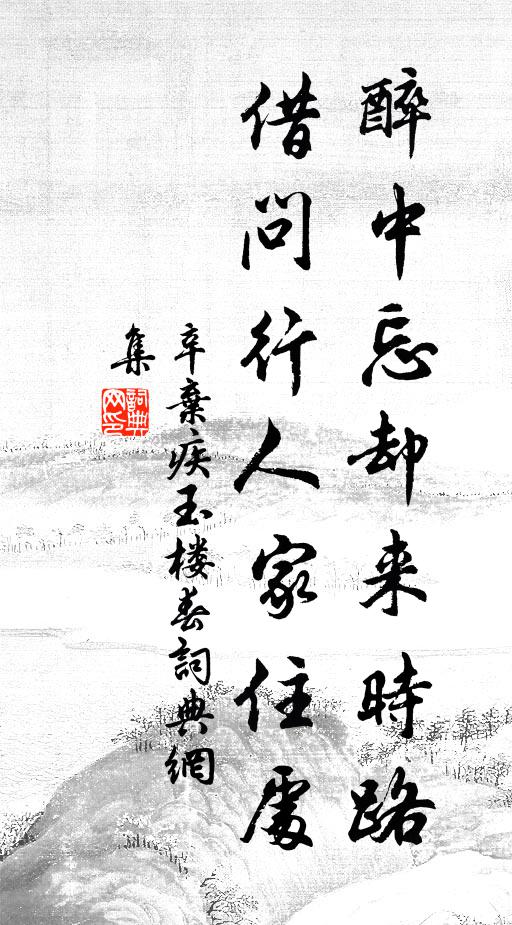 醉中忘却来時路
借問行人家住處
辛棄疾玉楼春詞典網
集
詞典
网印